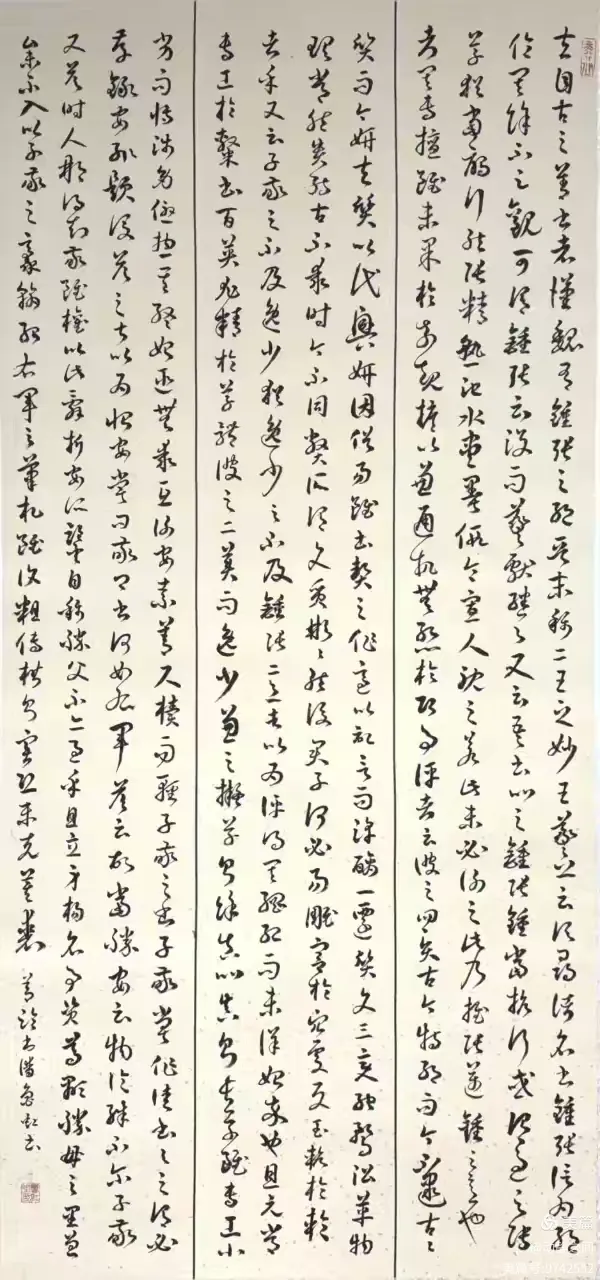 夫自古之善書者漢魏有鍾張之絕晉末稱二王之妙王羲之云頃尋諸名書鍾張信為絕
倫其餘不足觀可謂鍾張云沒而羲獻繼之又云吾書比之鍾張鍾當抗行或謂過之張
草猶當雁行然張精熟池水盡墨假令寡人耽之若此未必謝之此乃推張邁鍾之意也
考其專擅雖未果於前規摭以兼通故無慚於即事評者云彼之四賢古今特絕而今不逮古古
質而今妍夫質以代興妍因俗易雖書契之作適以記言而淳醨一遷質文三變馳騖沿革物
理常然貴能古不乖時今不同弊所謂文質彬彬然後君子何必易雕宮於穴處反玉輅於椎輪
者乎又云子敬之不及逸少猶逸少之不及鍾張意者以為評得其綱紀而未詳其始卒也且元常
專工於隸書百英尤精於草體彼之二美而逸少兼之擬草則餘真比真則長草雖專工小
劣而博涉多優總其終始匪無乖互謝安素善尺牘而輕子敬之書子敬嘗作佳書與之謂必
存錄安輒題後答之甚以為恨安嘗問敬卿書何如右軍答云故當勝安云物論殊不爾子敬
又答時人那得知敬雖權以此辭折安所鑒自稱勝父不亦過乎且立身揚名事資尊顯勝母之里曾
參不入以子敬之豪翰紹右軍之筆札雖復粗傳楷則實恐未克箕裘